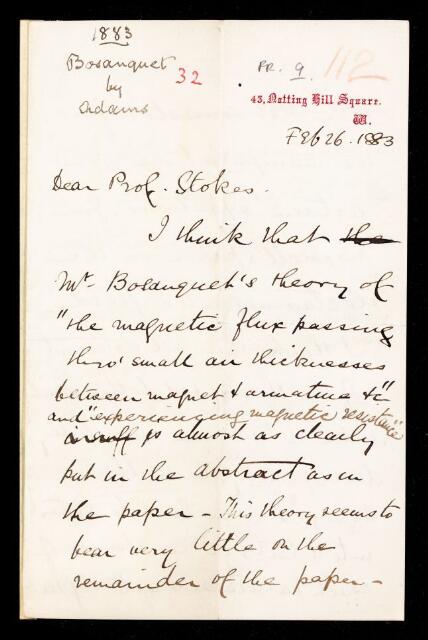 1883
Bosanquet
by
Adams
32
PR. 9.
112
43, Notting Hill Square.
W.
Feb 26. 1883
Dear Prof. Stokes.
I think that the
Mr. Bosanquet's theory of
"the magnetic flux passing
thro' small air thicknesses
between magnet & armature &c"
and "experiencing magnetic resistance"
is almost as clearly
put in the abstract as in
the paper - This theory seems to
bear very little on the
remainder of the paper -